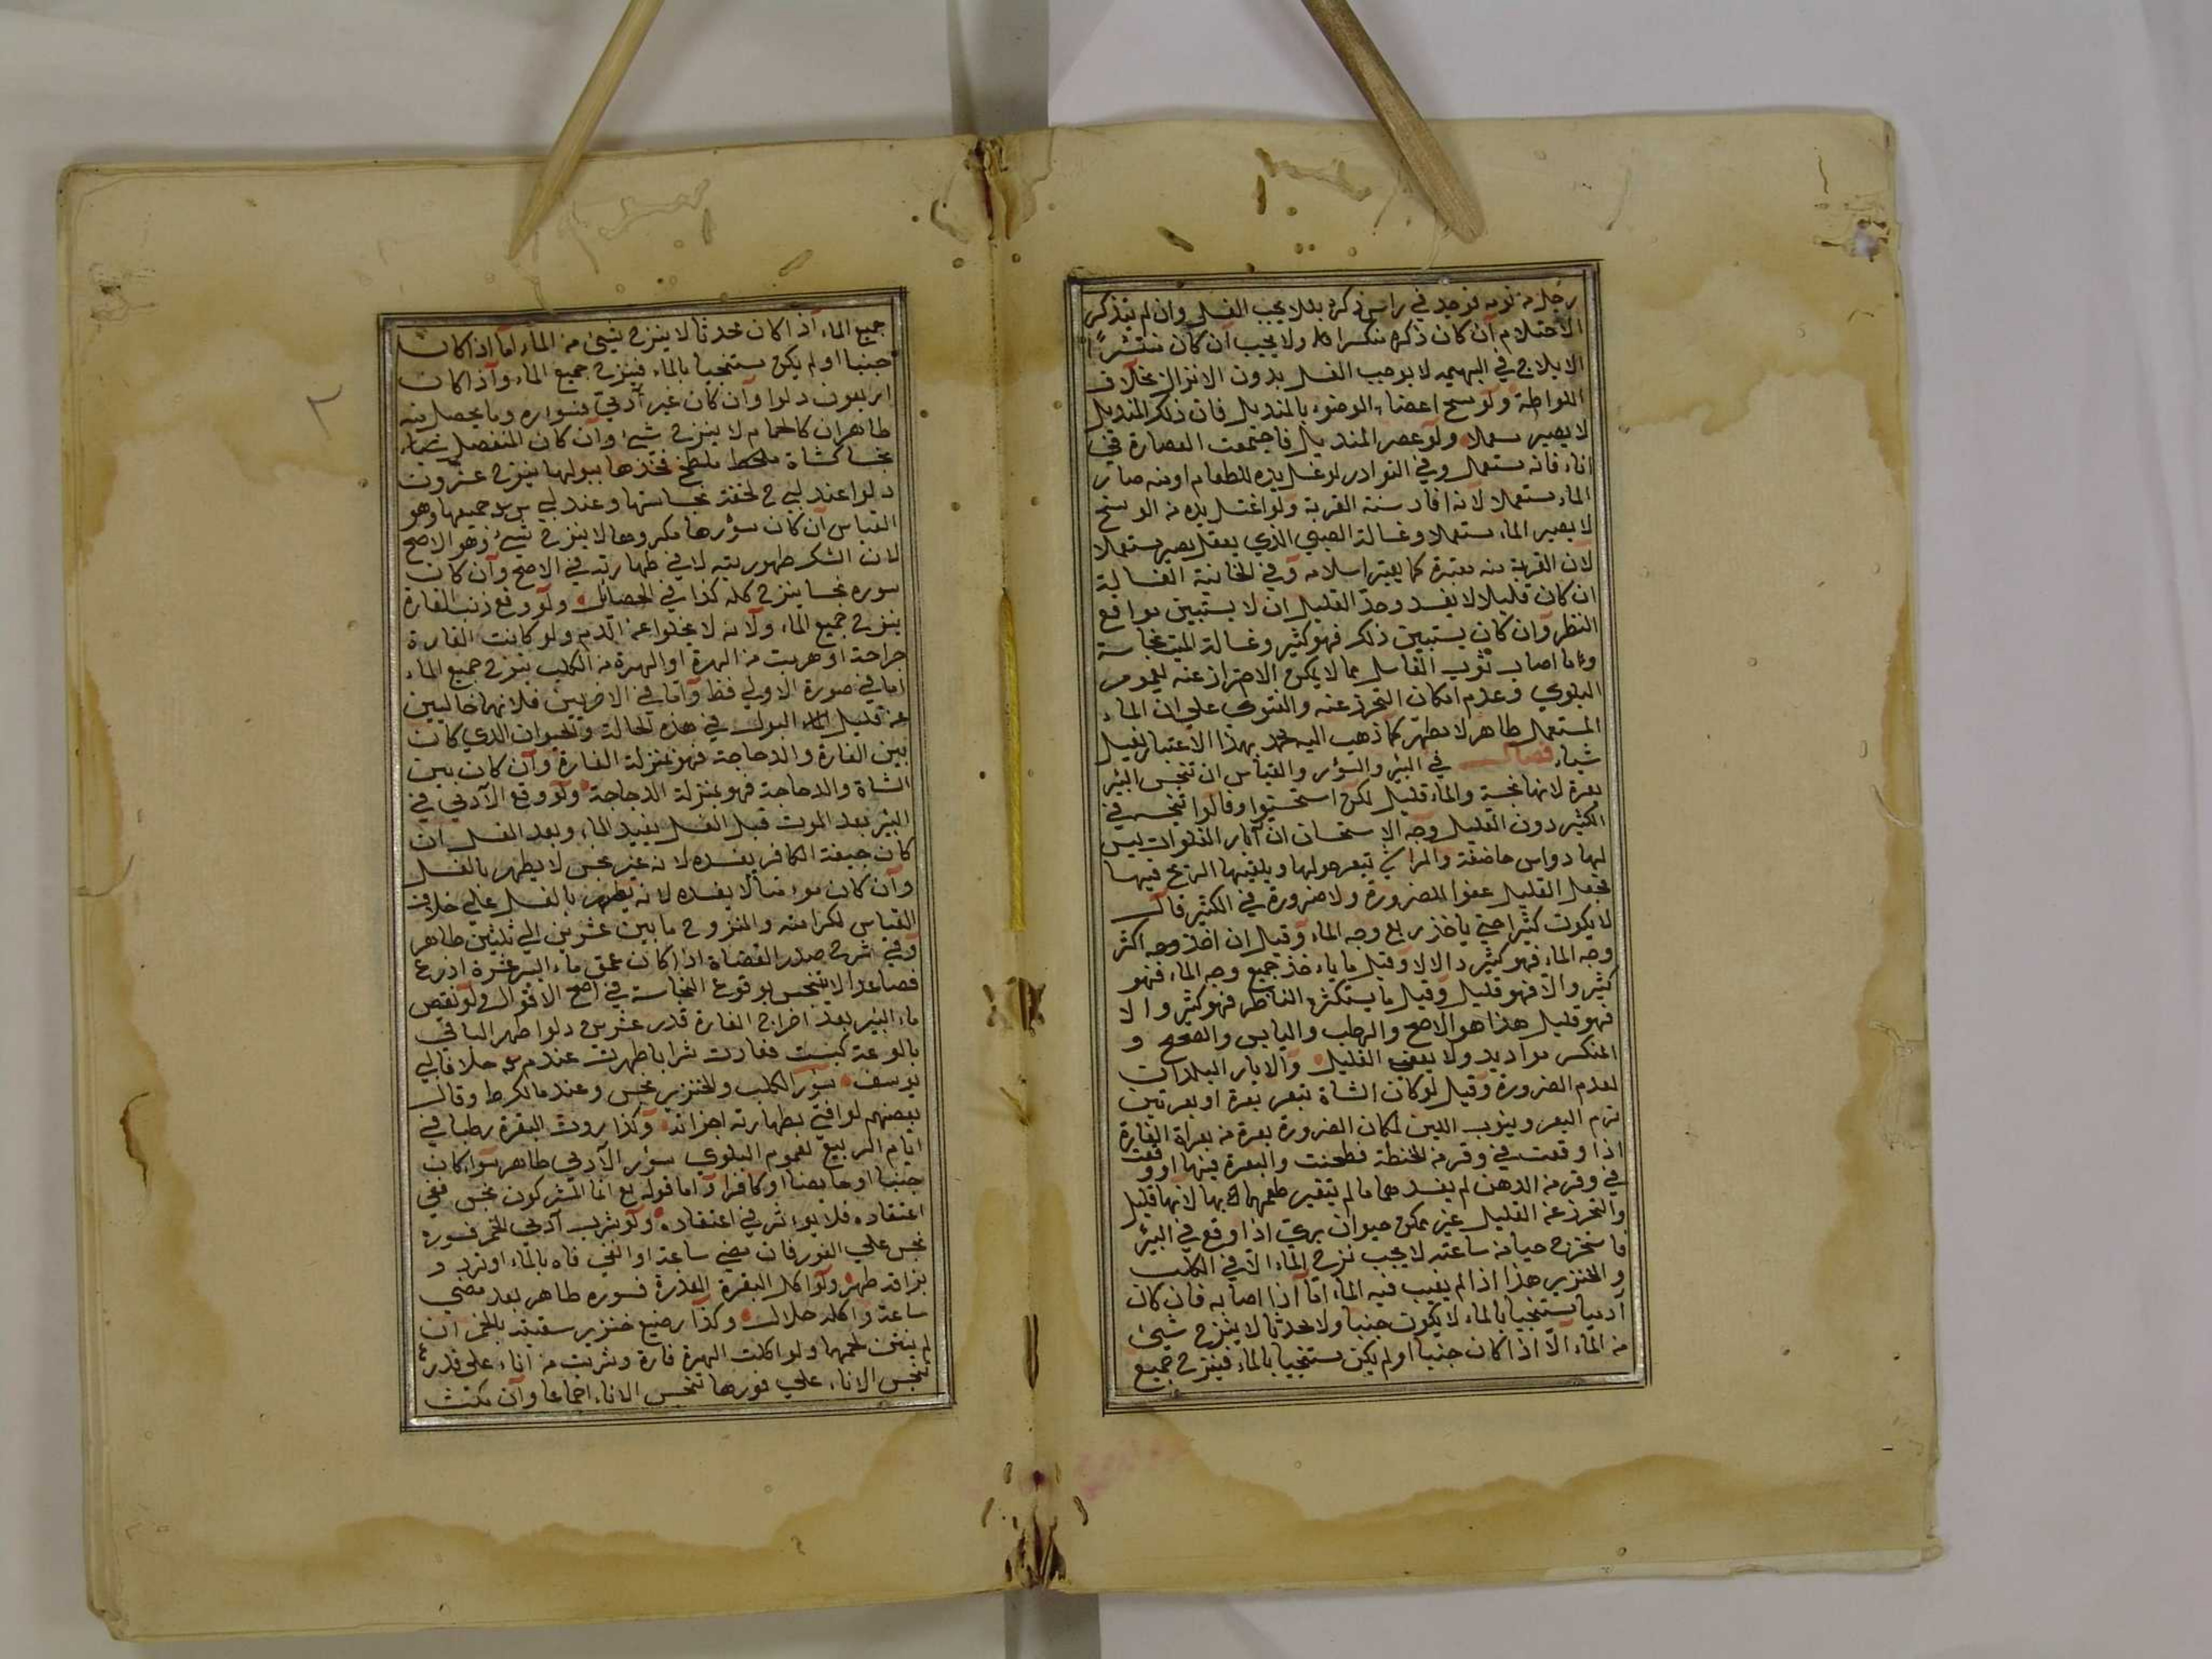 رجل من نومه فوجد في راس ذكره بللا يجب الغسل وان لم يتذكر
الاحتلام ان كان ذكره منكسرا ولا يجب ان كان منتشرًا
الايلاج في البهيمه لا يوجب الغسل بدون الانزال بخلاف
اللواطة ولو مسح اعضاء الوضوء بالمنديل فان ذلك المنديل
لا يصير مستعملا ولو عصر المنديل فاجتمعت العصارة في
اناء فانه مستعمل وفي النوادر لو غسل يده للطعام او منه صار
الماء مستعملا لانه افاد سنة القربة ولو اغتسل يده من الوسخ
لا يصير الماء مستعملا وغسالة الصبي الذي يعقل يصير مستعملا
لان القربة منه معتبرة كما يعتبر اسلامه وفي الخانية الغسالة
ان كان قليلا لا يفسد وحد القليل ان لا يستبين مواقع
النظر وان كان يستبين ذلك فهو كثير وغسالة الميت نجاسة
وما اصاب ثوب الغاسل مما لا يمكن الاحتراز عنه لعموم
البلوي وعدم امكان التحرز عنه والفتوي علي ان الماء
المستعمل طاهر لا مطهر كما ذهب اليه محمد بهذا الاعتبار لغسل
شياء فصل في البئر والسؤر والقياس ان تنجس البئر
بعرة لانها نجسة والماء قليل لكن استحسنوا وقالوا تنجس في
الكثير دون القليل وجه الاستحسان ان آبار الفلوات ليس
لها رواس حاضنة والمواشي تبعر حولها ويلقيها الريح فيها
فجعل القليل عفوا للضرورة ولا ضرورة في الكثير قال
لا يكون كثيرا حتي ياخذ ربع وجه الماء وقيل ان اخذ وجه اكثر
وجه الماء فهو كثير والا لا وقيل ما ياءخذ جميع وجه الماء فهو
كثير والا فهو قليل وقيل ما يستكثره الناظر فهو كثير والا
فهو قليل هذا هو الاصح والرطب واليابس والصحيح و
المنكسر سواء ولا يعفي القليل والابار البلدان
لعدم الضرورة وقيل لو كان الشاة تبعر بعرة او بعرتين
ترم البعر ويشرب اللبن لمكان الضرورة بعرة من بعراة الفارة
اذا وقعت في وقر من الحنطة فطحنت والبعرة فيها او وقعت
في وقر من الدهن لم يفسد هما ما لم يتغير طعمهما بها لانها قليل
والتحرز عن القليل غير ممكن حيوان بري اذا وقع في البئر
فاستخرج حيا من ساعته لا يجب نزح الماء الا في الكلب
والخنزير هذا اذا لم يغيب فيه الماء اما اذا اصابه فان كان
آدميا يستنجيا بالماء لا يكون جنبا ولا محدثا لا ينزح شيئ
من الماء الا اذا كان جنبا او لم يكن مستنجيا بالماء فينزح جميع
جميع الماء اذا كان محدثا لا ينزح شيئ من الماء اما اذا كان
جنبا او لم يكن مستنجيا بالماء فينزح جميع الماء وآذا كان
اربعون دلوا وآن كان غير آدمي فسواره وما يحصل منه
طاهران كالحمام لا ينزح شيئ وآن كان المنفصل منهاء
نجسا كشاة ملطخ فخذها ببولها ينزح عشرون
دلوا عند ابي ح لخفة نجاستها وعند ابي س جميعها وهو
القياس آن كان سؤرها مكروها لا ينزح شيئ وهو الاصح
لان الشك طهوريته لا في طهارته في الاصح وآن كان
سوره نجسا ينزح كله كذا في الحصائل ولو وقع ذنب الفارة
ينزح جميع الماء ولآنه لا يخلوا عن الدم ولو كانت الفارة
جراحة او هربت من الهرة او الهرة من الكلب ينزح جميع الماء
اما في صورة الاولي فظ واما في الاخريين فلانهما خاليين
عن قليل البول في هذه الحالة والحيوان الذي كان
بين الفارة والدجاجة فهو بمنزلة الفارة وآن كان بين
الشاة والدجاجة فهو بمنزلة الدجاجة ولو وقع الآدمي في
البئر بعد الموت قبل الغسل يفسد الماء وبعد الغسل ان
كان جيفة الكافر يفسده لانه عين نجس لا يطهر بالغسل
وآن كان موءمنا لا يفسده لانه يطهر بالغسل علي خلاف
القياس لكرامته والمنزوح ما بين عشرين الي ثلثين طاهر
وفي شرح صدر القضاة اذا كان عمق ماء البئر عشرة اذرع
فصاعدا لا يتنجس بوقوع النجاسة في اصح الاقوال ولو نقص
ماء البئر بعد اخراج الفارة قدر عشرين دلوا طهر الباقي
بالوعة كبست فغارت شرابا طهرت عند م خلافا لابي
يوسف سؤر الكلب والخنزير نجس وعند مالك ط وقال
بعضهم لو افتي بطهارته اجزائه وكذا روث البقرة رطبا في
ايام الربيع لعموم البلوي سؤر الآدمي طاهر سواء كان
جنبا او حايضا او كافرا واما قوله تع انما المشركون نجس فغي
اعتقاده فلا يواثر في اعتقاده ولو شرب آدمي الخمر فسوره
نجس علي الفور فان مضي ساعة او القي فاه بالماء او تردد
بزاقه طهر ولو اكل البقرة العذرة فسوره طاهر بعد مضي
ساعة واكله حلال وكذا رضيع خنزير سقيته بالخمر ان
لم ينتن لحمها ولو اكلت الهرة فارة وشربت من اناء علي قدر
تنجس الاناء علي فورها تنجس الاناء اجماعا وآن مكثت
٣